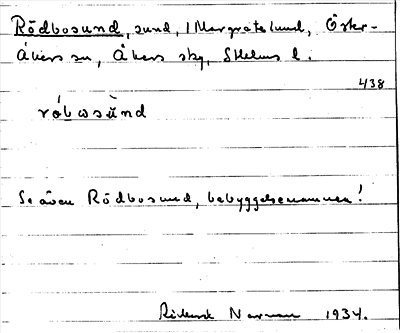 Rödbosund, sund, i Margretelund, Öster-
Åkers sn, Åkers skg, Sthlms l.
438
róbωsùnd
Se även Rödbosund, bebyggelsenamnen!
Rickard Norman 1934.